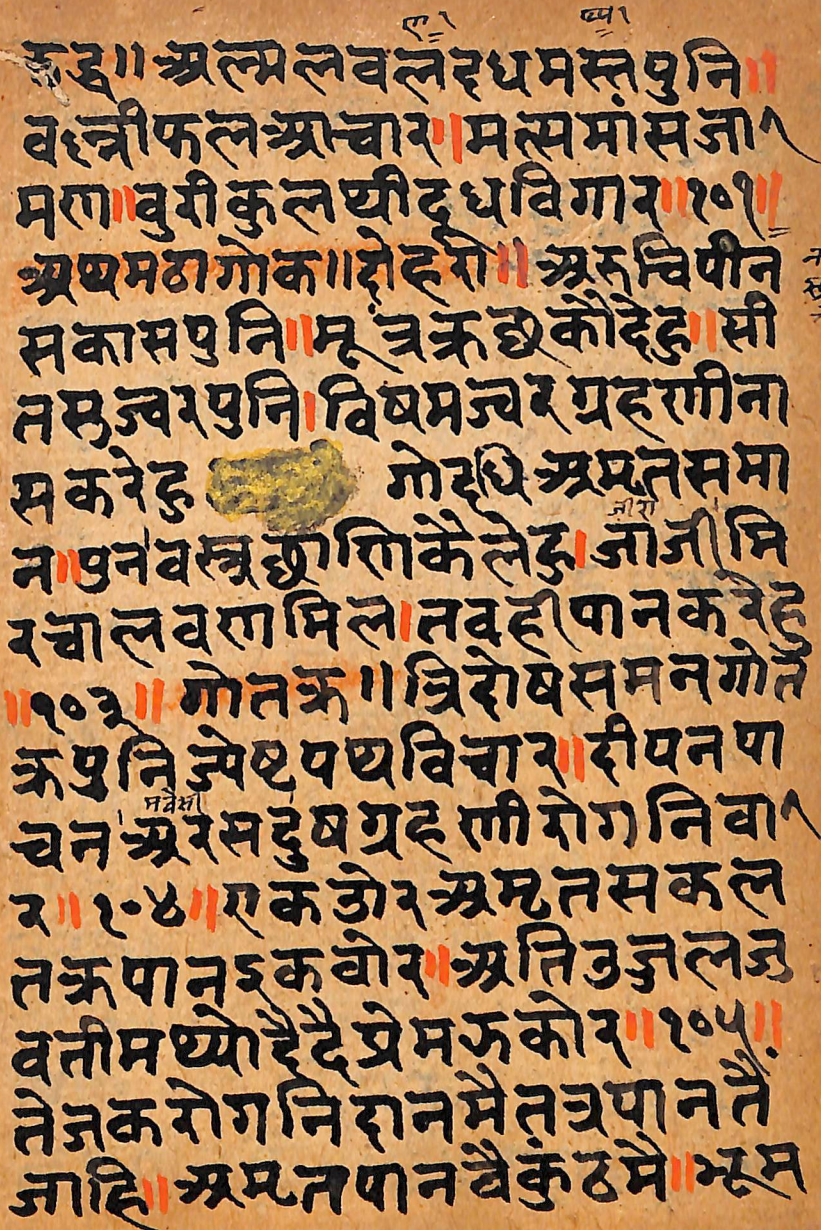 रुद्ध॥ अल्म लवल दधमस्तपुनि॥
वइत्रीफलआचार॥मत्समांसजा
मण॥वुरीकुलथीदूधविगार॥१०१॥
अथमठागोक॥दोहरो॥ अरुचिपीन
सकासपुनि॥मूत्रक्रछ्रकौदेहु॥सी
तसुज्वरपुनि।विषमज्वरग्रहणीना
सकरेहु गोदधि अमृतसमा
न॥पुनवस्त्रछाणिकैलेहु।जाजीमि
रचालवणमिल।तवहीपानकरेहु
॥१०३॥ गोतक्र॥त्रिदोषसमनगोत
क्रपुनिज्येष्टपथ्यविचार॥दीपनपा
मवेसी
चनअरसदुषग्रहणीरोगनिवा
र॥१०४॥एकठोरअमृतसकल
तक्रपानइकवोर॥अतिउजुलजु
वतीमथ्योहैदैप्रेमझकोर॥१०५॥
तेजकरोगनिदानमैतत्रपानतै
जाहि॥अमृतपानवैकुंठमै॥भूम